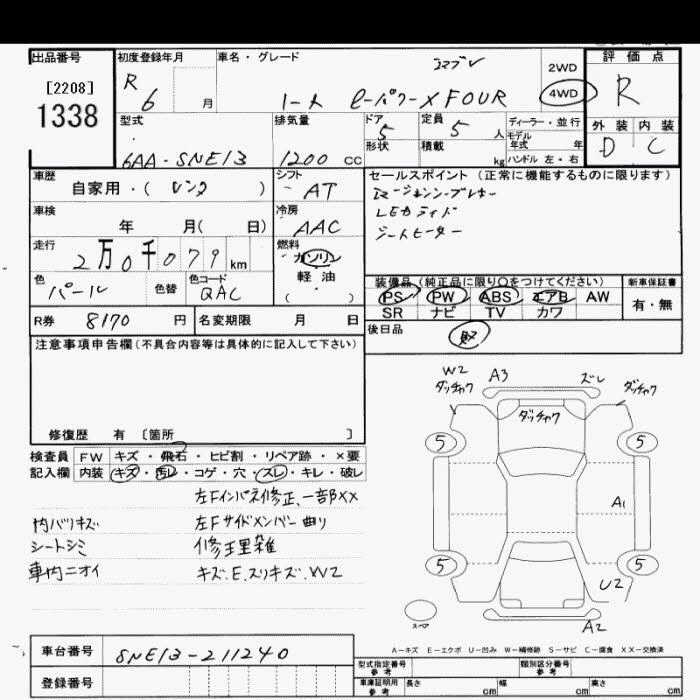 出品番号
[2208]
1338
初度登録年月
R 6 月
車名・グレード
ノート e-パワーX FOUR
2WD
4WD
評価点
R
外装 内装
D C
型式
6AA-SNE13
排気量
1200 cc
ドア
5
形状
定員
5 人
積載
kg
ディーラー・並行
モデル
年式 年
ハンドル 左・右
車歴
自家用・( レンタ )
シフト
AT
車検
年 月( 日)
冷房
AAC
走行
2万0千079 km
燃料
ガソリン
軽・油
( )
色
パール
色替
色コード
QAC
R券 8170 円
名変期限 月 日
セールスポイント (正常に機能するものに限ります)
エマージェンシーブレーキ
LEDライト
シートヒーター
装備品 (純正品に限り○をつけてください)
PS PW ABS エアB AW
SR ナビ TV カワ
新車保証書
有・無
後日品
注意事項申告欄 (不具合内容等は具体的に記入して下さい)
修復歴 有 〔箇所 〕
検査員 FW キズ・飛石・ヒビ割・リペア跡・×要
記入欄 内装 キズ・汚レ・コゲ・穴・スレ・キレ・破レ
左Fインパネ修正、一部BXX
内バリキズ 左Fサイドメンバー曲り
シートシミ 修正里雑
車内ニオイ キズ.E.スリキズ.W2
W2 A3 ズレ
ダッチャク ダッチャク
ダッチャク
5 5
A1
5 5
U2
スペア
A2
A-キズ E-エクボ U-凹み W-補修跡 S-サビ C-腐食 XX-交換済
車台番号 SNE13-211240
登録番号
型式指定番号
参考
類別区分番号
参考
車庫証明用
参考
長さ cm 幅 cm 高さ cm